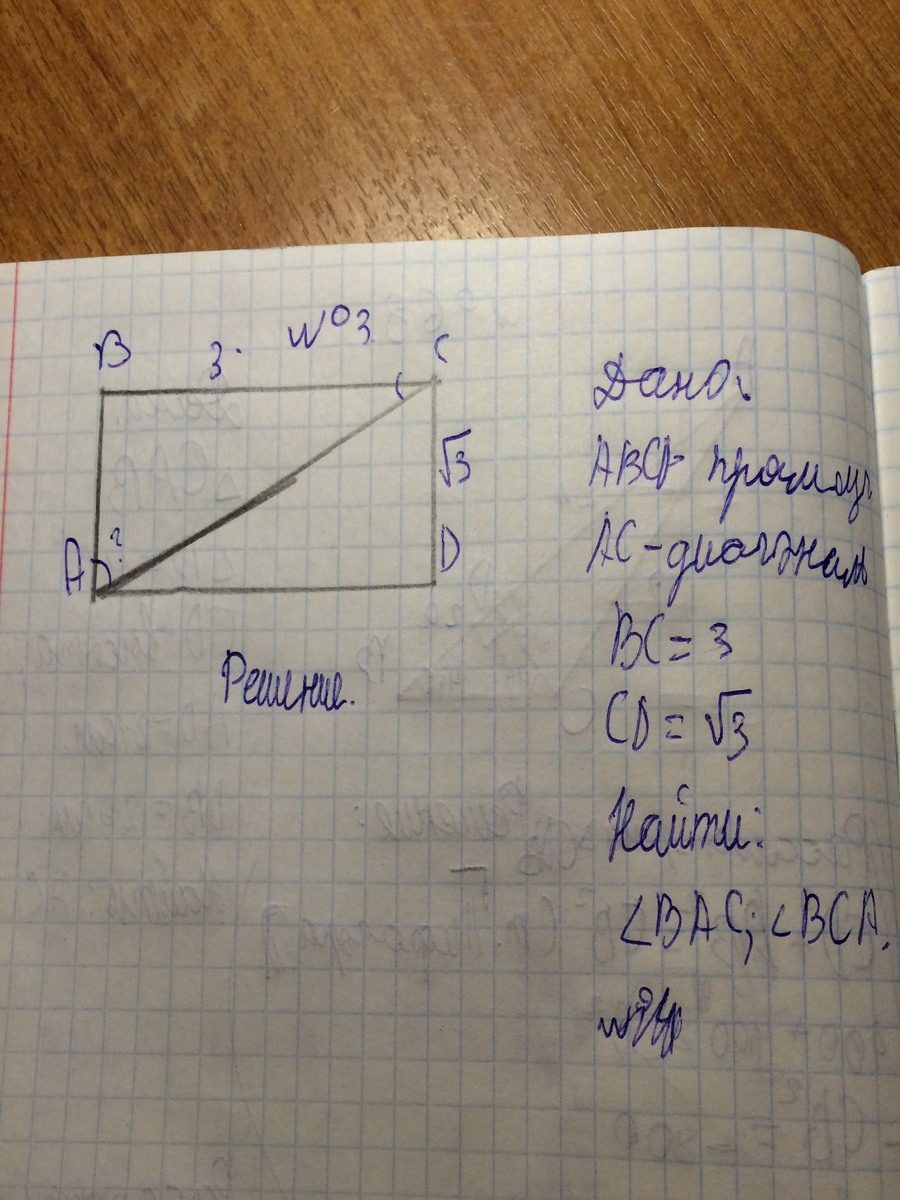 №3
B
3
C
√3
A
?
D
Решение.
Дано:
ABCD - прямоуг.
AC - диагональ
BC = 3
CD = √3
Найти:
∠BAC; ∠BCA.